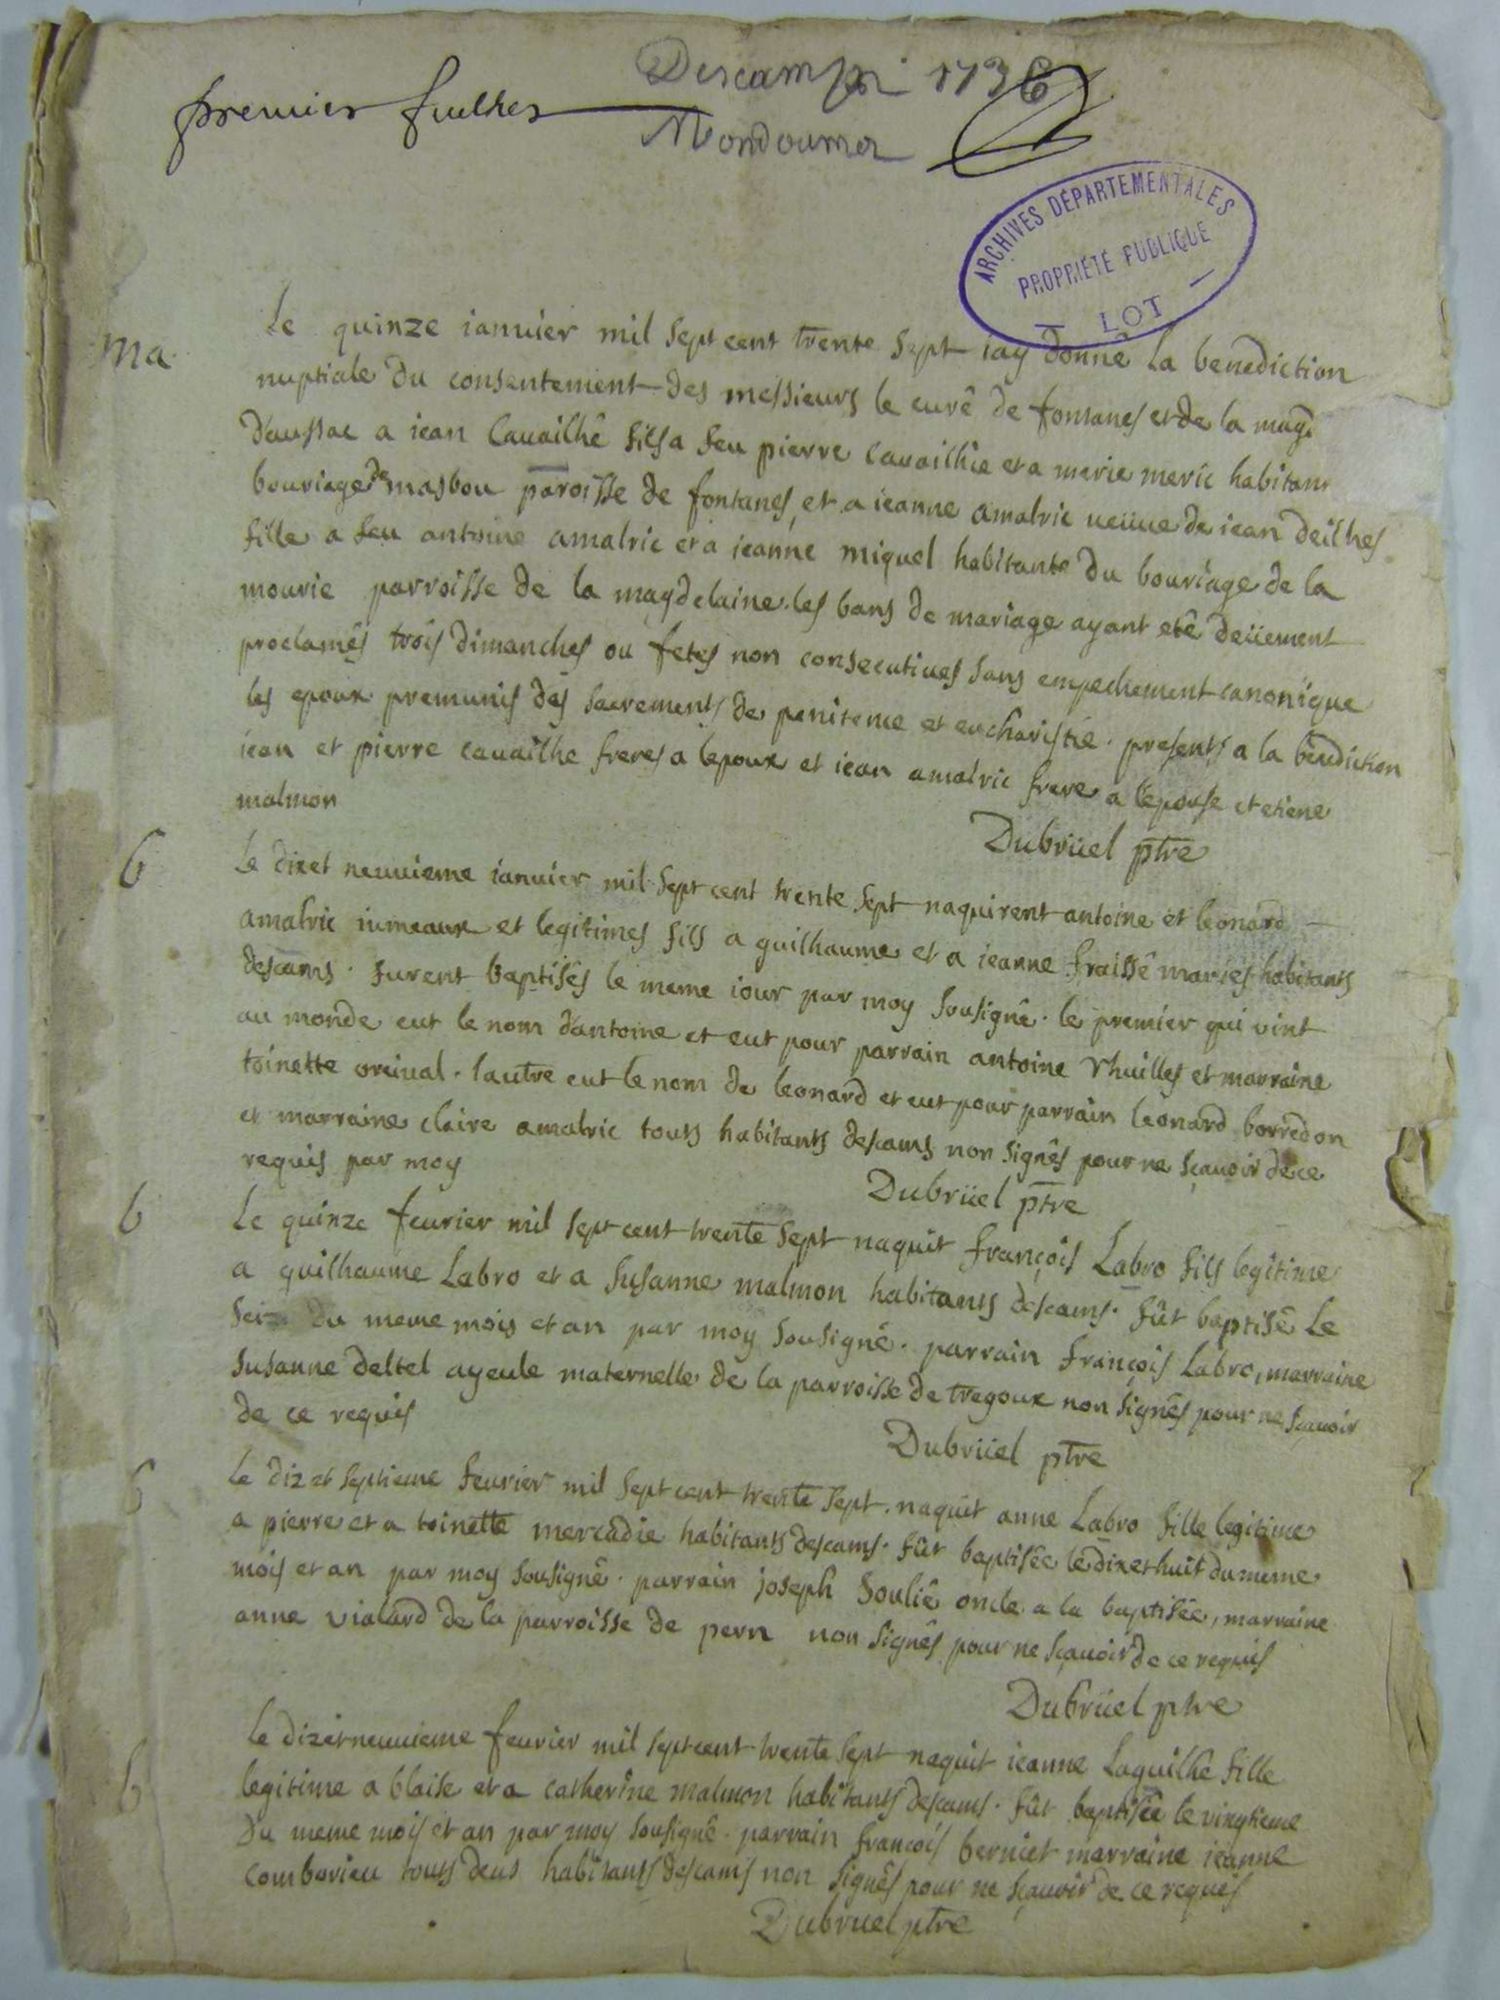 premier fuilhet
Descamps 1736
Mondoumer
ARCHIVES DÉPARTEMENTALES
PROPRIÉTÉ PUBLIQUE
LOT
ma
Le quinze ianuier mil sept cent trente sept iay donnê la benediction
nuptiale du consentement des messieurs le curê de fontanes et de la magd
daussac a iean Cauailhê fils a feu pierre cauailhie et a marie meric habitans
bouriage de masbou paroisse de fontanes, et a ieanne amalric ueüue de iean deilhes
fille a feu antoine amalric et a ieanne miquel habitante du bouriage de la
mourie parroisse de la magdelaine. les bans de mariage ayant etê deüement
proclamês trois dimanches ou fetes non consecutiues sans empechement canonique
les epoux premunis des sacrements de penitence et eucharistie. presents a la benediction
iean et pierre cauailhe freres a lepoux et iean amalric frere a lepouse et etiene
malmon
Dubrüel ptre
b
Le dixet neuuieme ianuier mil sept cent trente sept naquirent antoine et leonard
amalric iumeaux et legitimes fils a guilhaume et a ieanne fraissê mariês habitants
descams. furent baptisês le meme iour par moy sousignê. le premier qui vint
au monde eut le nom dantoine et eut pour parrain antoine Vhuilles et marraine
toinette oreival. lautre eut le nom de leonard et eut pour parrain leonard borredon
et marraine claire amalric touts habitants descams non signês pour ne sçauoir de ce
requis par moy
Dubrüel ptre
b
Le quinze feurier mil sept cent trente sept naquit françois Labro fils legitime
a guilhaume Labro et a susanne malmon habitants descams. fût baptisê Le
seize du meme mois et an par moy sousignê. parrain françois Labro, marraine
susanne deltel ayeule maternelle de la parroisse de tregoux non signês pour ne sçauoir
de ce requis
Dubrüel ptre
b
Le dix et septieme feurier mil sept cent trente sept. naquit anne Labro fille legitime
a pierre et a toinette mercadie habitants descams. fût baptisêe le dixet huit du meme
mois et an par moy sousignê. parrain joseph Souliê oncle a la baptisée, marraine
anne vialard de la parroisse de pern non signês pour ne sçauoir de ce requis
Dubrüel ptre
b
Le dixet neuuieme feurier mil sept cent trente sept naquit ieanne Laguilhe fille
legitime a blaise et a catherine malmon habitants descams. fût baptisêe le vingtieme
du meme mois et an par moy sousignê. parrain françois berniet marraine ieanne
comborieu touts deus habitants descams non signês pour ne sçauoir de ce requis
Dubruel ptre